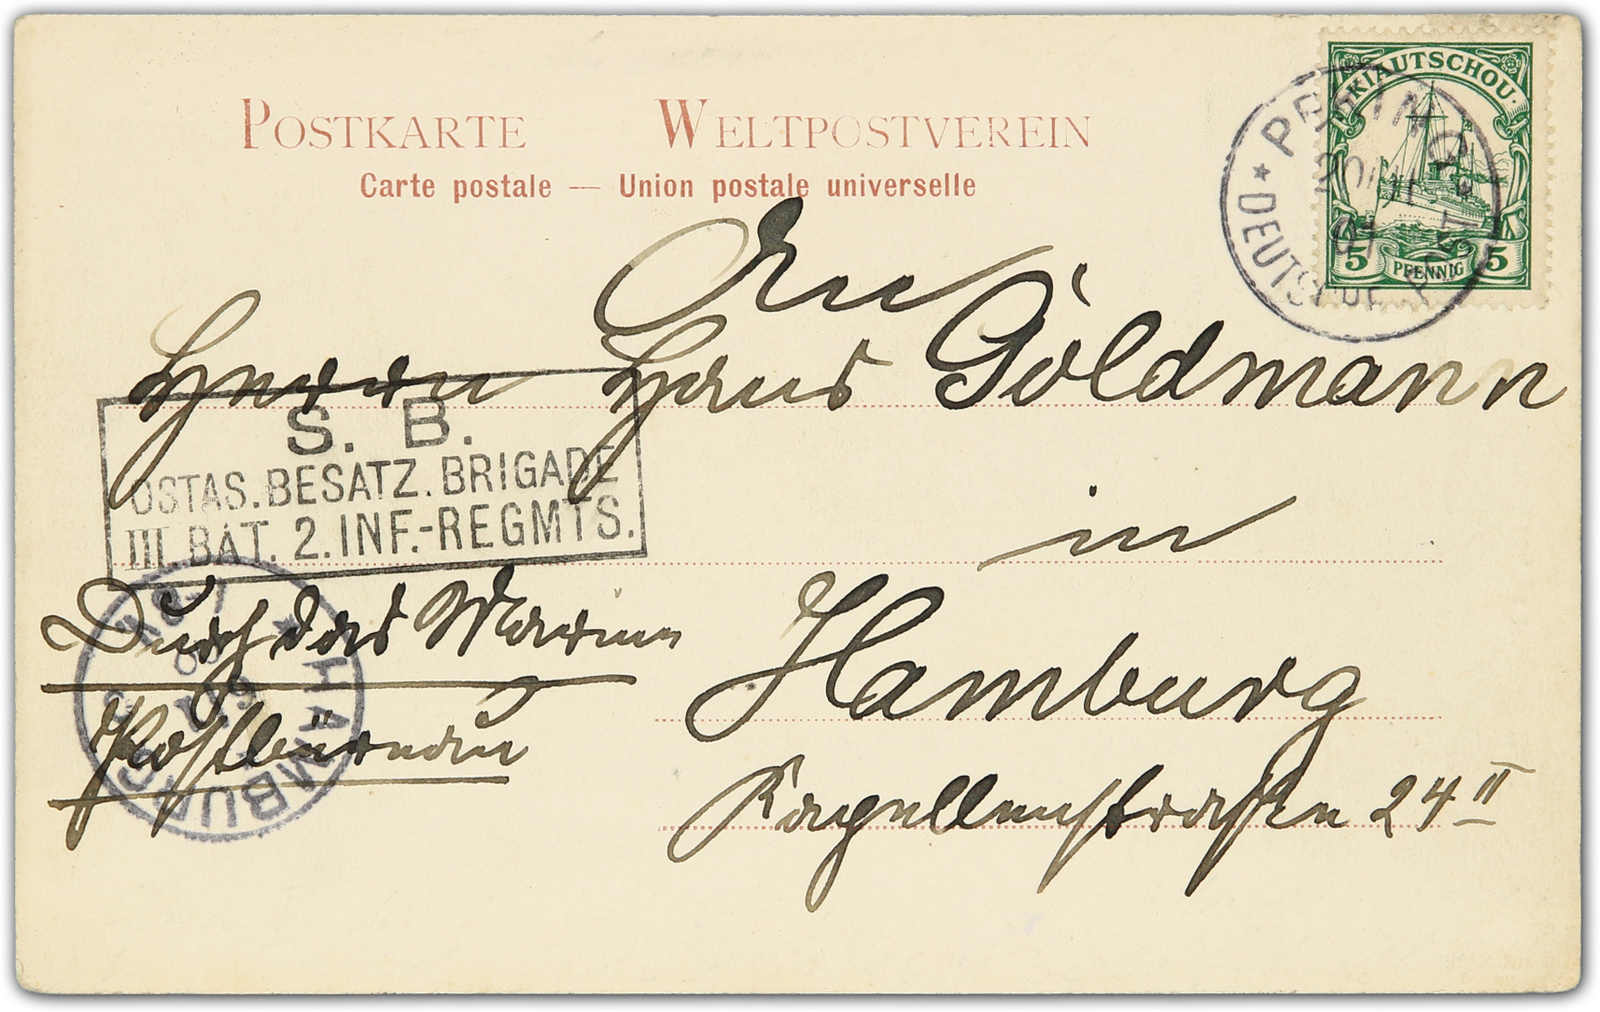 POSTKARTE WELTPOSTVEREIN
Carte postale — Union postale universelle
KIAUTSCHOU
5 PFENNIG 5
PEKING
DEUTSCHE POST
An
Herrn Hans Goldmann
in
Hamburg
24 II
S. B.
OSTAS. BESATZ. BRIGADE
III. BAT. 2. INF.-REGMTS.
Durch das Marine
Postbüreau
* HAMBURG